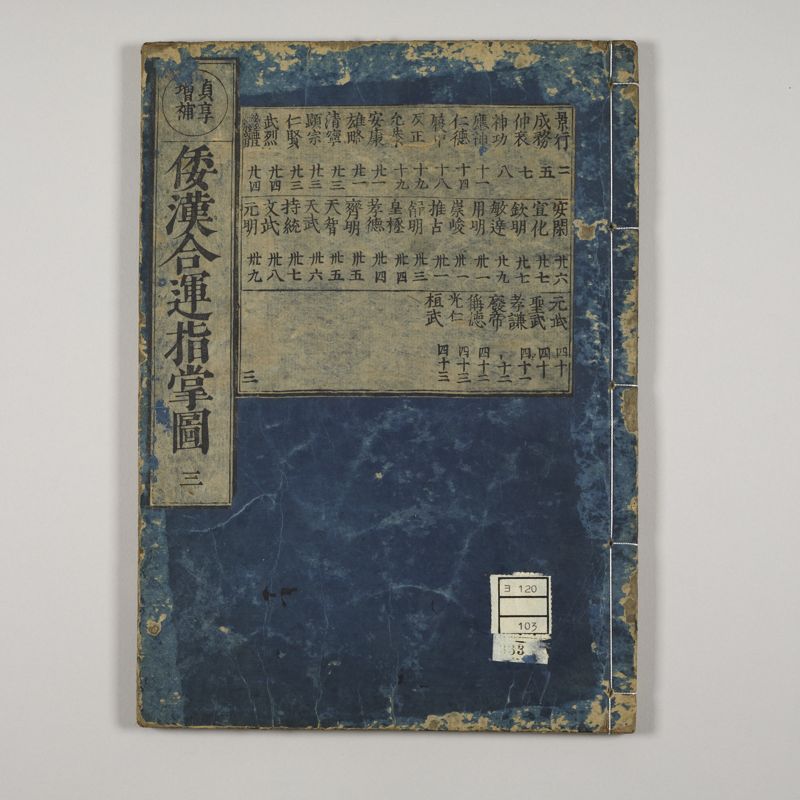 貞享
增補
倭漢合運指掌圖 三
景行 二
成務 五
仲哀 七
神功 八
應神 十一
仁德 十四
履中 十八
反正 十九
允恭 十九
安康 廿一
雄略 廿一
清寧 廿三
顯宗 廿三
仁賢 廿三
武烈 廿四
繼體 廿四
安閑 卅六
宣化 卅七
欽明 卅七
敏達 卅九
用明 卅一
崇峻 卅一
推古 卅一
舒明 卅三
皇極 卅四
孝德 卅四
齊明 卅五
天智 卅五
天武 卅六
持統 卅七
文武 卅八
元明 卅九
元正 四十
聖武 四十
孝謙 四十一
廢帝 四十二
稱德 四十二
光仁 四十三
桓武 四十三
三
ヨ 120
103
33